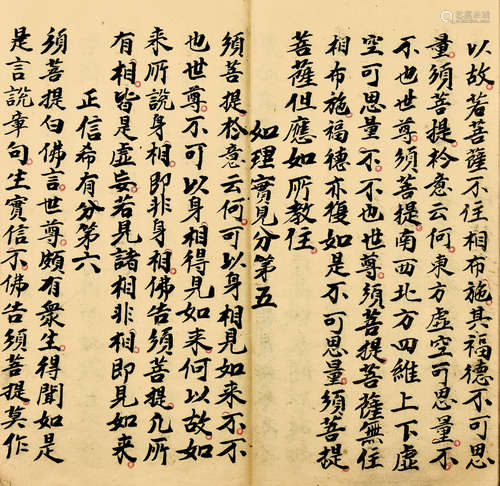 以故若菩薩不住相布施其福德不可思
量須菩提於意云何東方虛空可思量不
不也世尊須菩提南西北方四維上下虛
空可思量不不也世尊須菩提菩薩無住
相布施福德亦復如是不可思量須菩提
菩薩但應如所教住
如理實見分第五
須菩提於意云何可以身相見如來不不
也世尊不可以身相得見如來何以故如
來所說身相即非身相佛告須菩提凡所
有相皆是虛妄若見諸相非相即見如來
正信希有分第六
須菩提白佛言世尊頗有衆生得聞如是
是言說章句生實信不佛告須菩提莫作